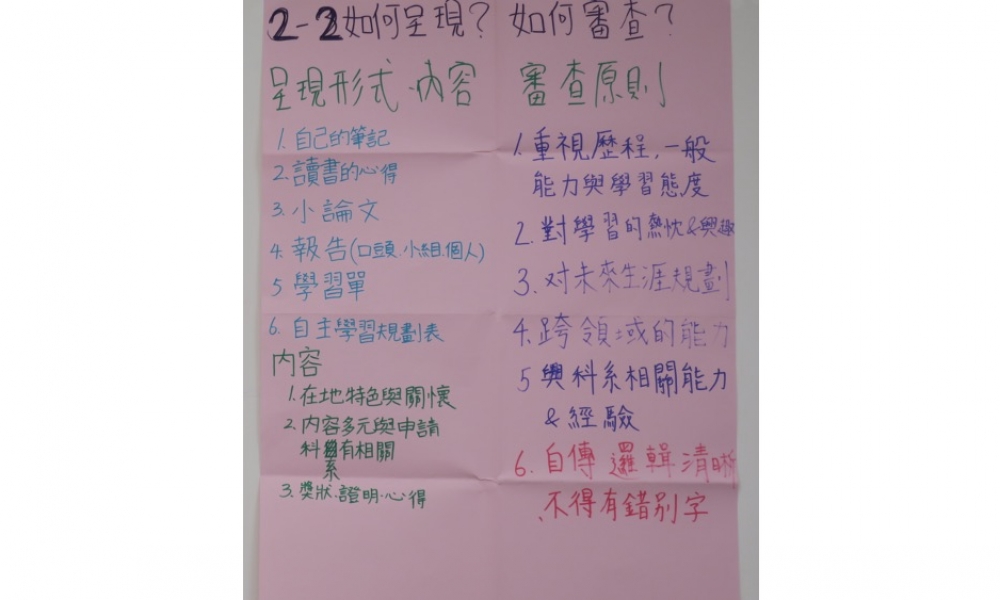 2-2如何呈現?
呈現形式、內容
1. 自己的筆記
2. 讀書的心得
3. 小論文
4. 報告(口頭.小組.個人)
5 學習單
6. 自主學習規劃表
內容
1. 在地特色與關懷
2. 內容多元與申請
科系有相關
3. 獎狀.證明.心得
如何審查?
審查原則
1. 重視歷程,一般
能力與學習態度
2. 對學習的熱忱&興趣
3. 对未來生涯規劃
4. 跨領域的能力
5 與科系相關能力
&經驗
6. 自傳邏輯清晰
、不得有錯別字